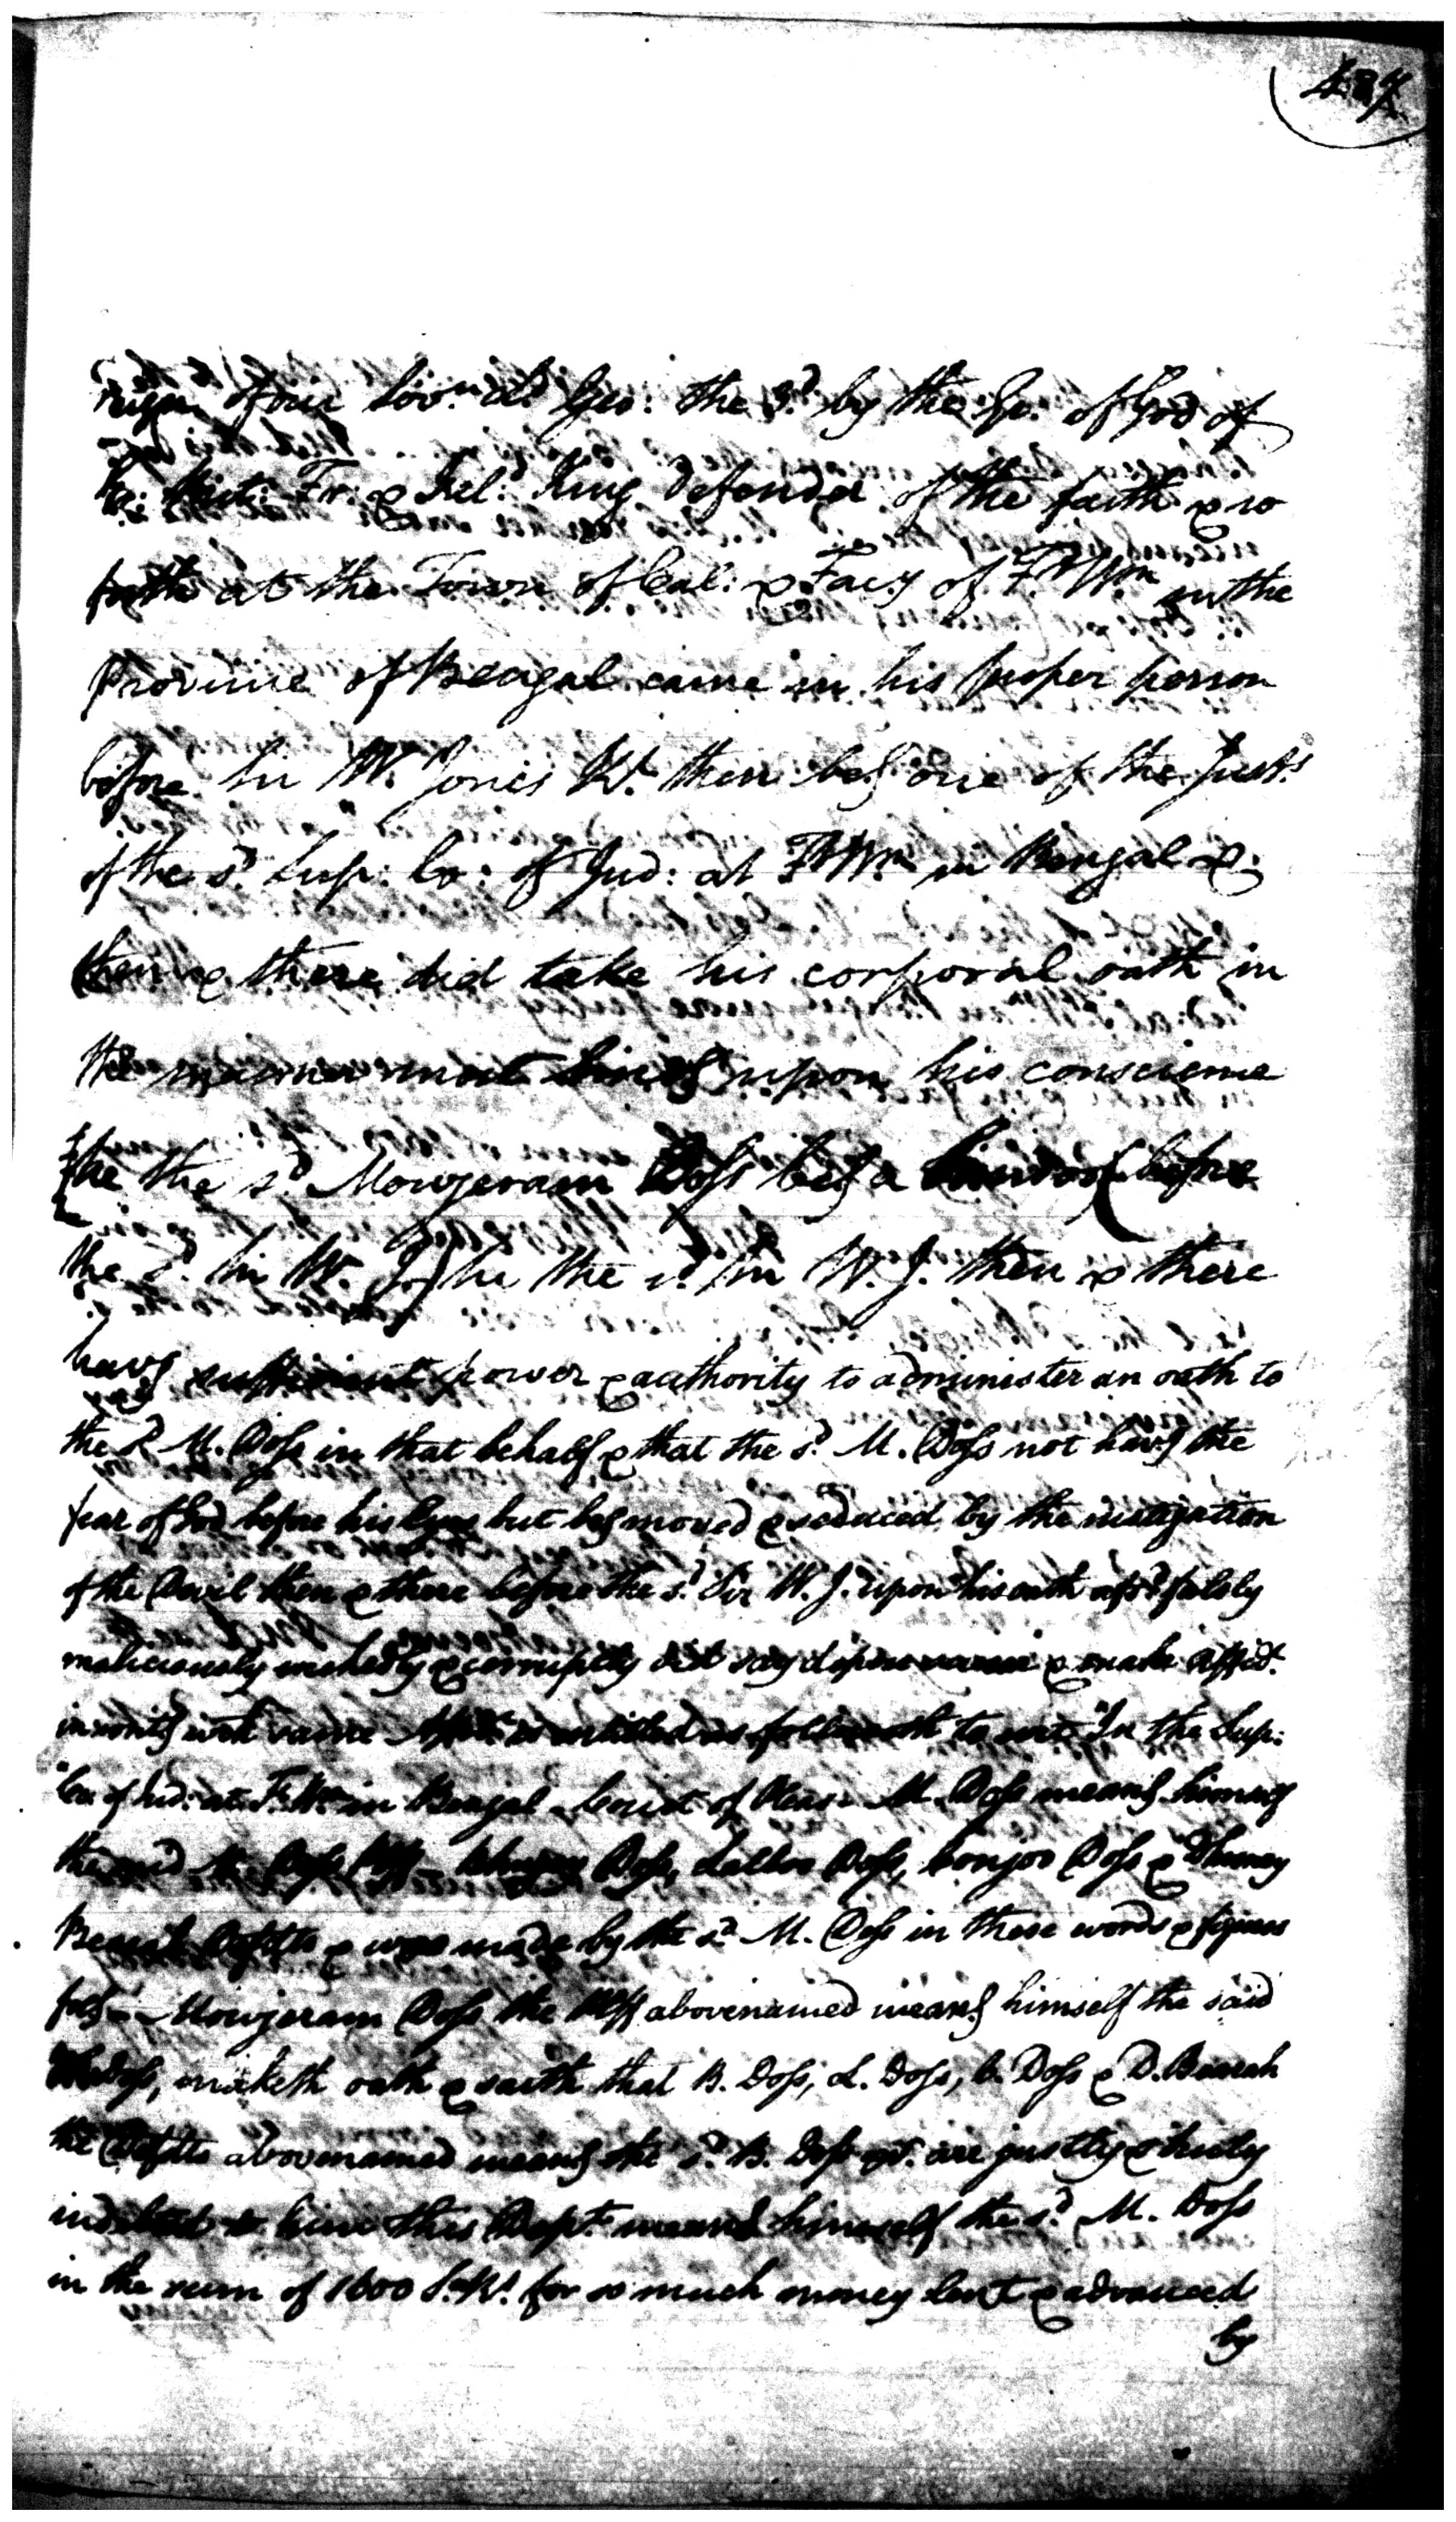 reign of our Sov.n Ld Geo: the 3.d by the Gr. of God of
Gr: Brit: Fr: & Irel: King defender of the faith & so
forth at the Town of Cal: & Facy of Ft Wm in the
Province of Bengal came in his proper person
before Sir W. Jones Kt. then beg one of the Justs
of the sd. Sup: Co: of Jud: at Ft Wm in Bengal &
then & there did take his corporal oath in
the manner most bindg upon his conscience
he the sd. Mowjeram Doss beg a (before
the sd. Sir W. J.) he the sd. Sir W. J. then & there
havg sufficient power & authority to administer an oath to
the sd. M. Doss in that behalf & that the sd. M. Doss not havg the
fear of God before his Eyes but beg moved & seduced by the instigation
of the Devil then & there before the sd. Sir W. J. upon his oath afsd. falsly
maliciously wickedly & corruptly did say depose & make Affidt.
in writg wch same is entitled as followeth to wit "In the Sup:
"Co. of Jud: at Ft. Wm in Bengal Court of Pleas M. Doss meang himself
the said M. Doss Plff Doss, Lalloo Doss, Conjoo Doss &
Defdts & was made by the sd. M. Doss in these words & figures
folg - Mowjeram Doss the Plff abovenamed meang himself the said
M. Doss, maketh oath & saith that B. Doss, L. Doss, C. Doss & D.
the Defdts abovenamed meang the sd. B. Doss &c. are justly & truly
indebted to him this Dept. meang himself the sd. M. Doss
in the sum of 1600 S.Rs. for so much money lent & advanced
by